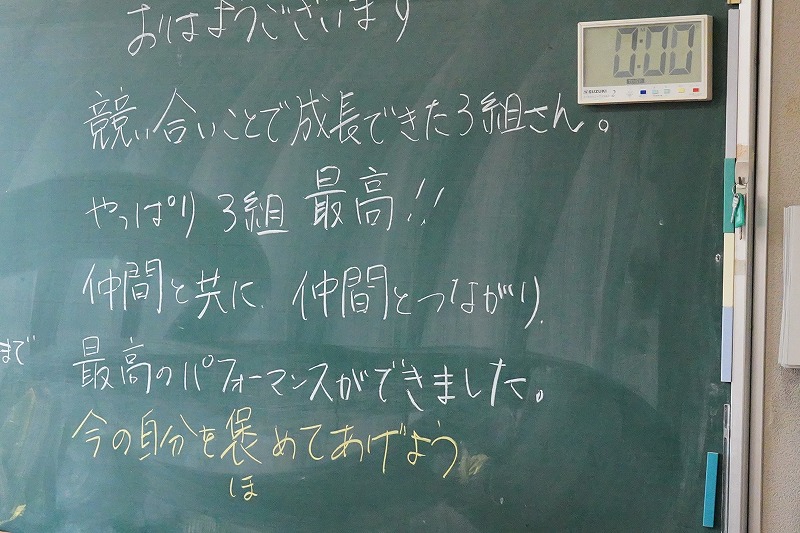 おはようございます
0:00
SUZUKI
競い合いことで成長できた3組さん。
やっぱり3組 最高!!
仲間と共に、仲間とつながり、
まで
最高のパフォーマンスができました。
今の自分を褒めてあげよう
ほ